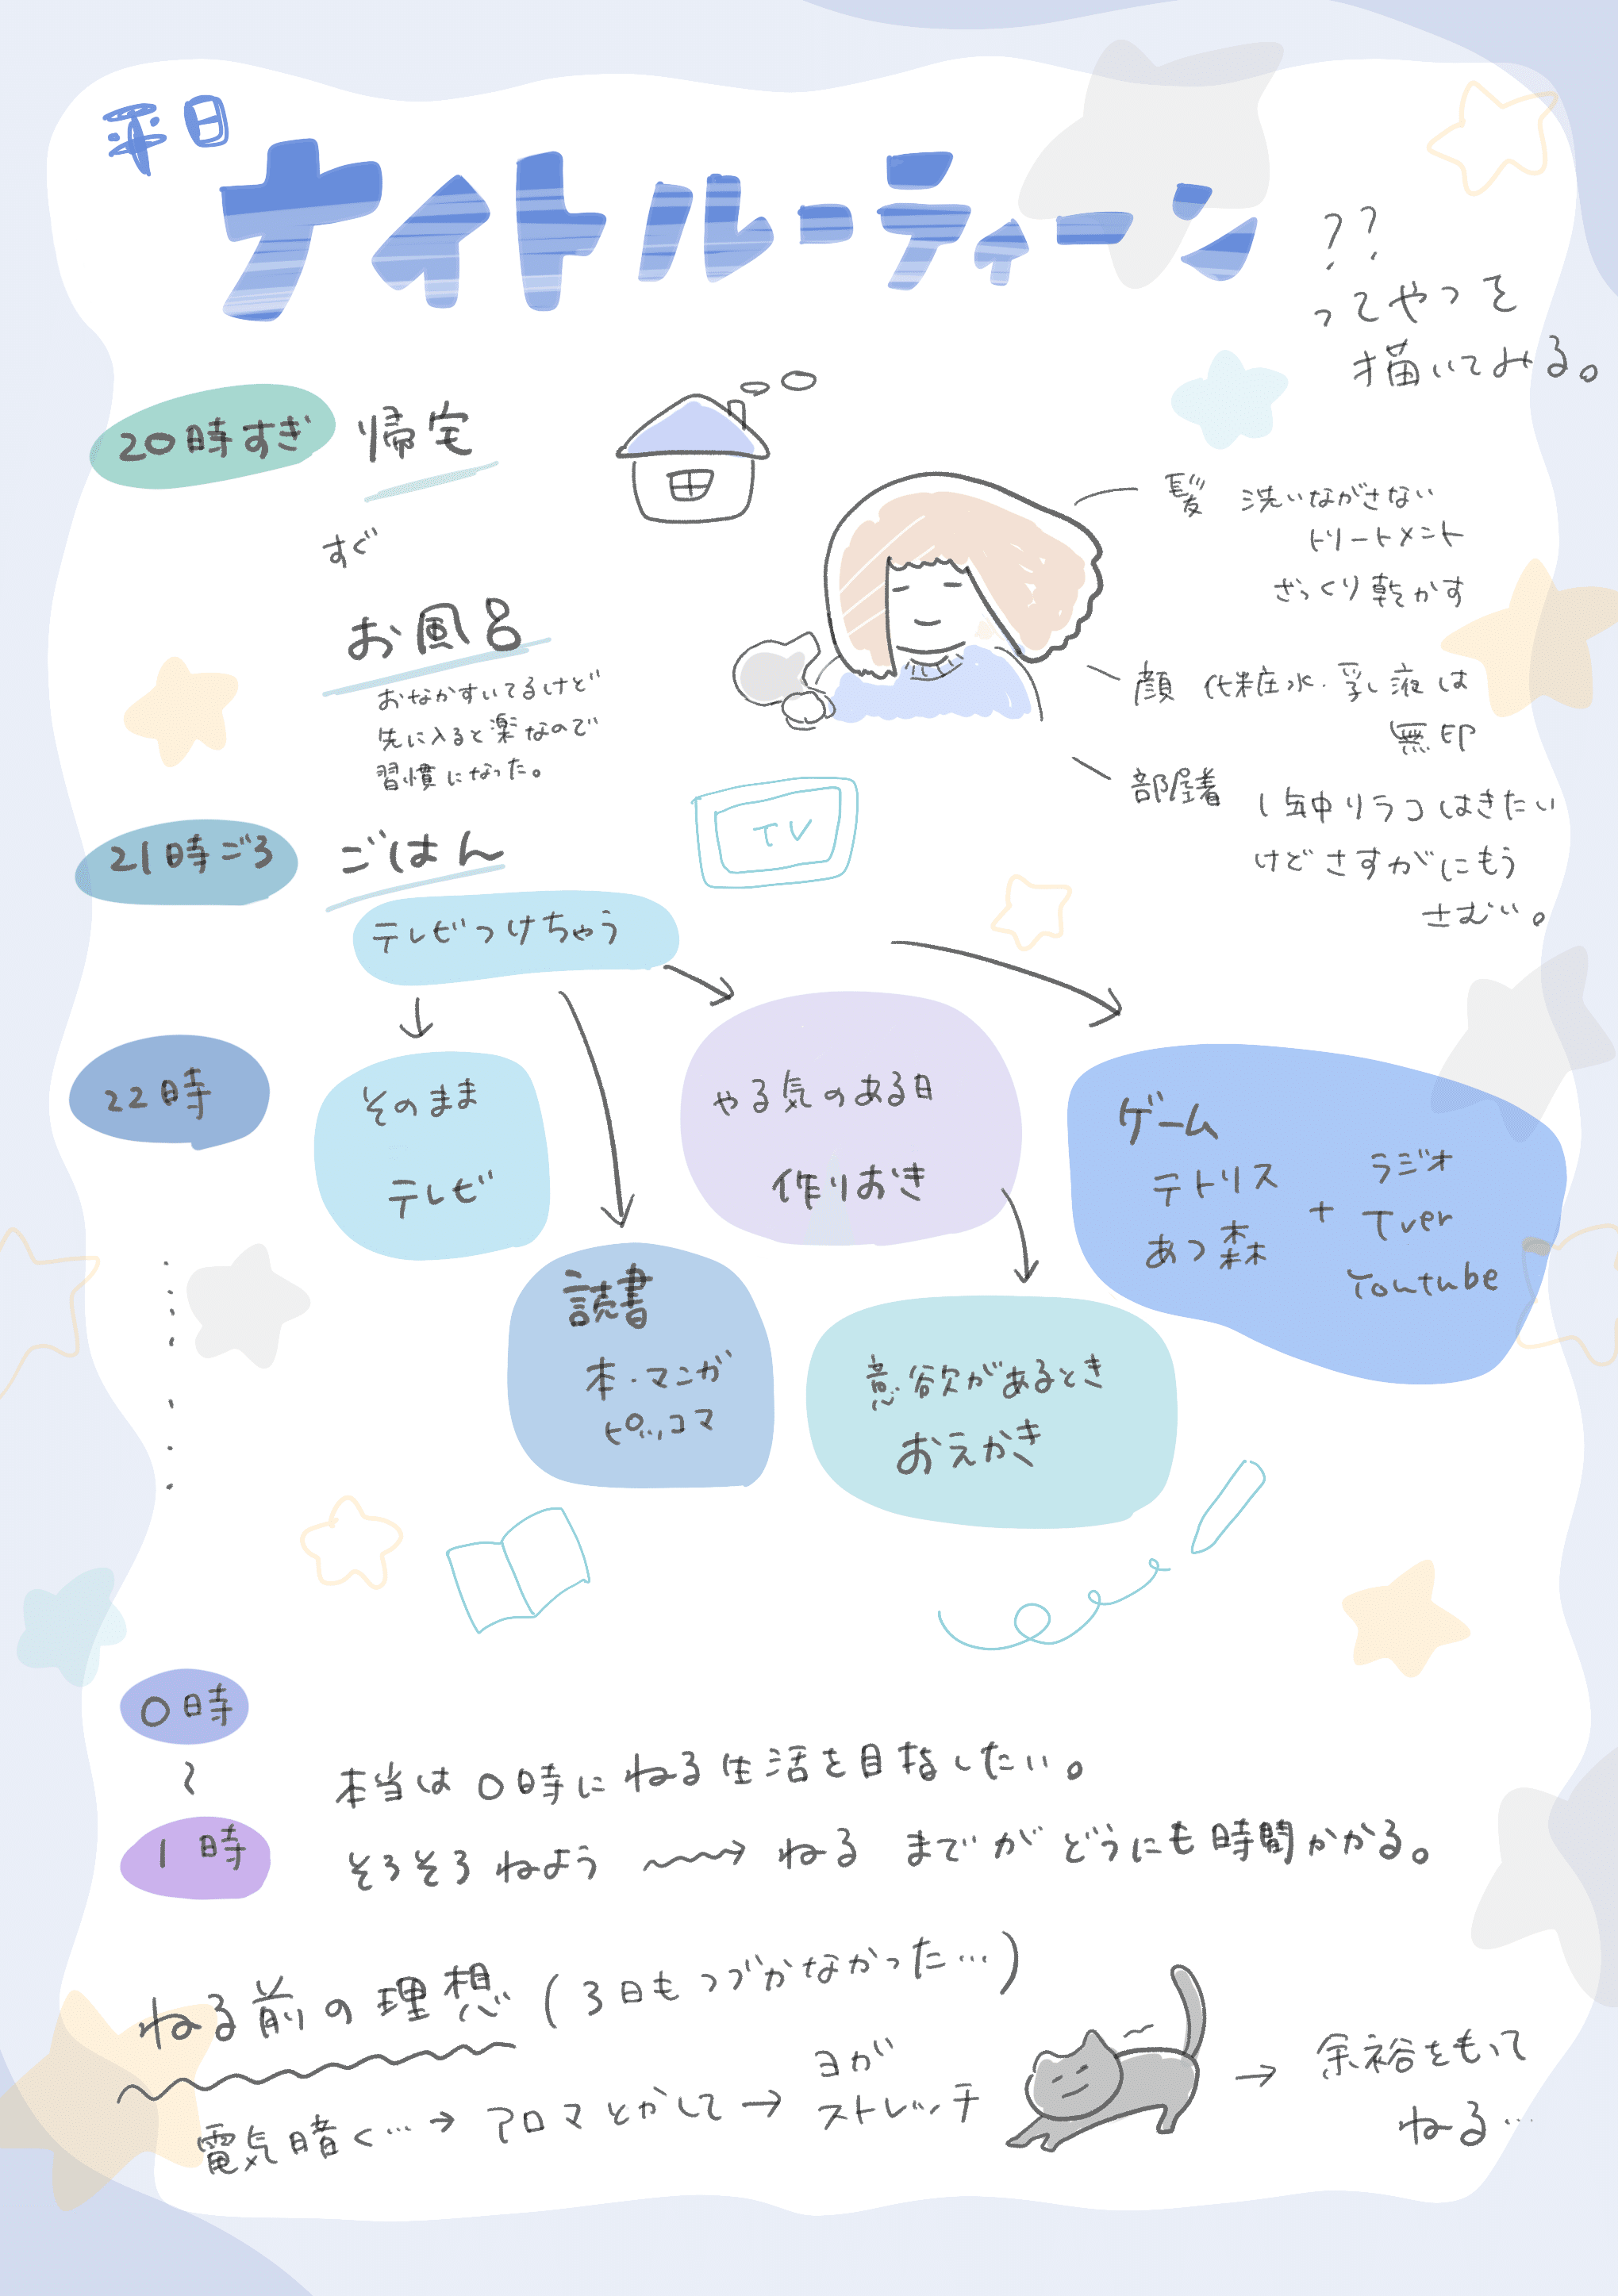 平日
ナイトルーティーン
??
ってやつを
描いてみる。
20時すぎ 帰宅
すぐ
お風呂
おなかすいてるけど
先に入ると楽なので
習慣になった。
髪 洗いながさない
トリートメント
ざっくり乾かす
顔 化粧水・乳液は
無印
部屋着 1年中リラコはきたい
けどさすがにもう
さむい。
21時ごろ ごはん
テレビつけちゃう
TV
22時
そのまま
テレビ
読書
本・マンガ
ピッコマ
やる気のある日
作りおき
意欲があるとき
おえかき
ゲーム
テトリス
あつ森
+
ラジオ
Tver
Youtube
0時
〜
1時
本当は0時にねる生活を目指したい。
そろそろねよう → ねる までがどうにも時間かかる。
ねる前の理想 (3日もつづかなかった…)
電気暗く…→ アロマとかして → ヨガ
ストレッチ
→ 余裕をもって
ねる…